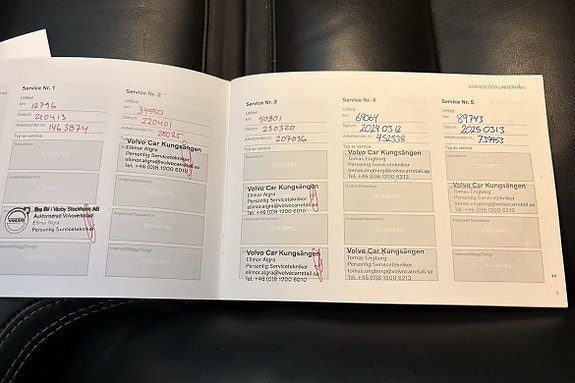 SERVICE OCH UNDERHÅLL
Service Nr. 1
Utförd
km 12796
Datum 210413
Arbetsorder nr. 1463874
Typ av service
STÄMPEL
Big Bil i Väsby Stockholm AB
Auktoriserad Volvoverkstad
Ellinor Algra
Personlig Servicetekniker
VOLVO
STÄMPEL
Service Nr. 2
Utförd
km 34550
Datum 220401
Arbetsorder nr. 20025
Typ av service
Volvo Car Kungsängen
Ellinor Algra
Personlig Servicetekniker
ellinor.algra@volvocarretail.se
Tel. +46 (0)8 1200 6010
STÄMPEL
STÄMPEL
Service Nr. 3
Utförd
km 50801
Datum 230320
Arbetsorder nr. 207036
Typ av service
STÄMPEL
Volvo Car Kungsängen
Ellinor Algra
Personlig Servicetekniker
ellinor.algra@volvocarretail.se
Tel. +46 (0)8 1200 6010
Volvo Car Kungsängen
Ellinor Algra
Personlig Servicetekniker
ellinor.algra@volvocarretail.se
Tel. +46 (0)8 1200 6010
Service Nr. 4
Utförd
km 69064
Datum 2024 03 12
Arbetsorder nr. 452538
Typ av service
Volvo Car Kungsängen
Tomas Engberg
Personlig Servicetekniker
tomas.engberg@volvocarretail.se
Tel. +46 (0)8 1200 6213
STÄMPEL
Volvo Car Kungsängen
Tomas Engberg
Personlig Servicetekniker
tomas.engberg@volvocarretail.se
Tel. +46 (0)8 1200 6213
Service Nr. 5
Utförd
km 89743
Datum 2025 03 13
Arbetsorder nr.
Typ av service
STÄMPEL
Volvo Car Kungsängen
Tomas Engberg
Personlig Servicetekniker
tomas.engberg@volvocarretail.se
Tel. +46 (0)8 1200 6213
STÄMPEL